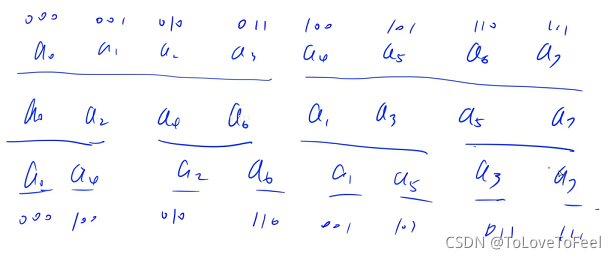 000 001 010 011 100 101 110 111
a₀ a₁ a₂ a₃ a₄ a₅ a₆ a₇
a₀ a₂ a₄ a₆ a₁ a₃ a₅ a₇
a₀ a₄ a₂ a₆ a₁ a₅ a₃ a₇
000 100 010 110 001 101 011 111
CSDN @ToLoveToFeel